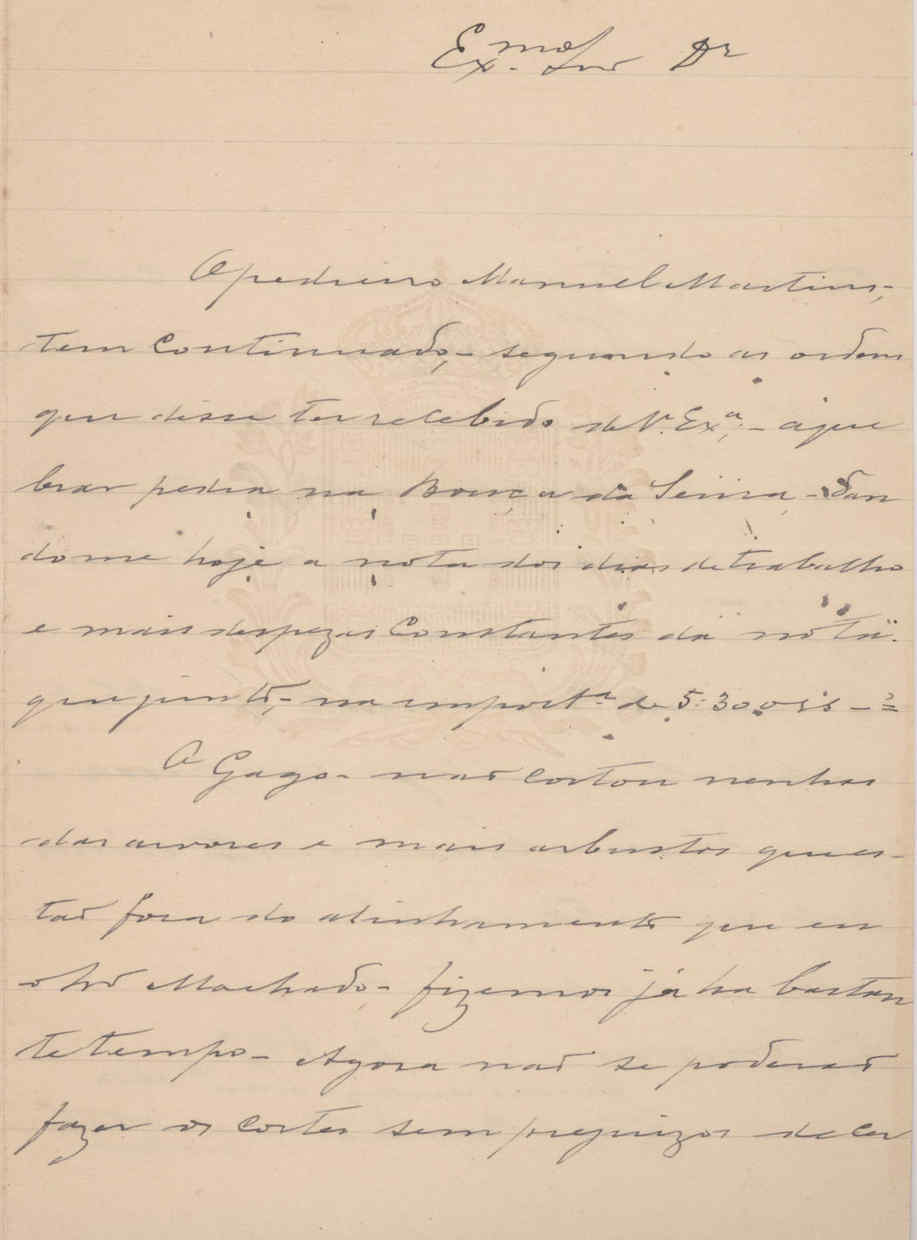 Ex.mo Snr Dr
O pedreiro Manuel Martins,
tem continuado, - segundo as ordens
que disse ter recebido de V. Exa, - a que
brar pedra na Bouça da Seirra, - dan
do me hoje a nota dos dias de trabalho
e mais despezas constantes da nota
que junto, - na importa de 5:300 rs -
O Gago - não cortou nenhas
das arvores e mais arbustos que es-
tão fora do alinhamento que eu
o Snr Machado, - fizemos já ha bastan
te tempo - Agora não se poderão
fazer os cortes sem prejuizos de cer